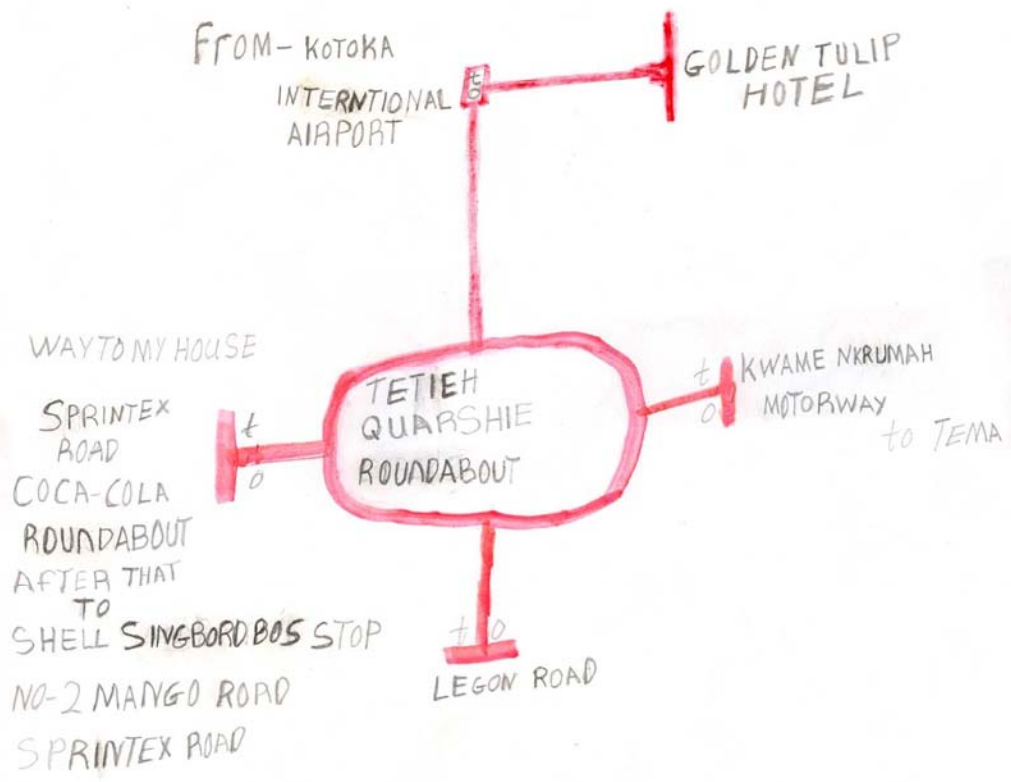 FROM - KOTOKA
INTERNTIONAL
AIRPORT
to
GOLDEN TULIP
HOTEL
WAY TO MY HOUSE
SPRINTEX
ROAD
COCA-COLA
ROUNDABOUT
AFTER THAT
TO
SHELL SINGBORD BOS STOP
NO-2 MANGO ROAD
SPRINTEX ROAD
to
TETIEH
QUARSHIE
ROUNDABOUT
to
KWAME NKRUMAH
MOTORWAY
to TEMA
to
LEGON ROAD